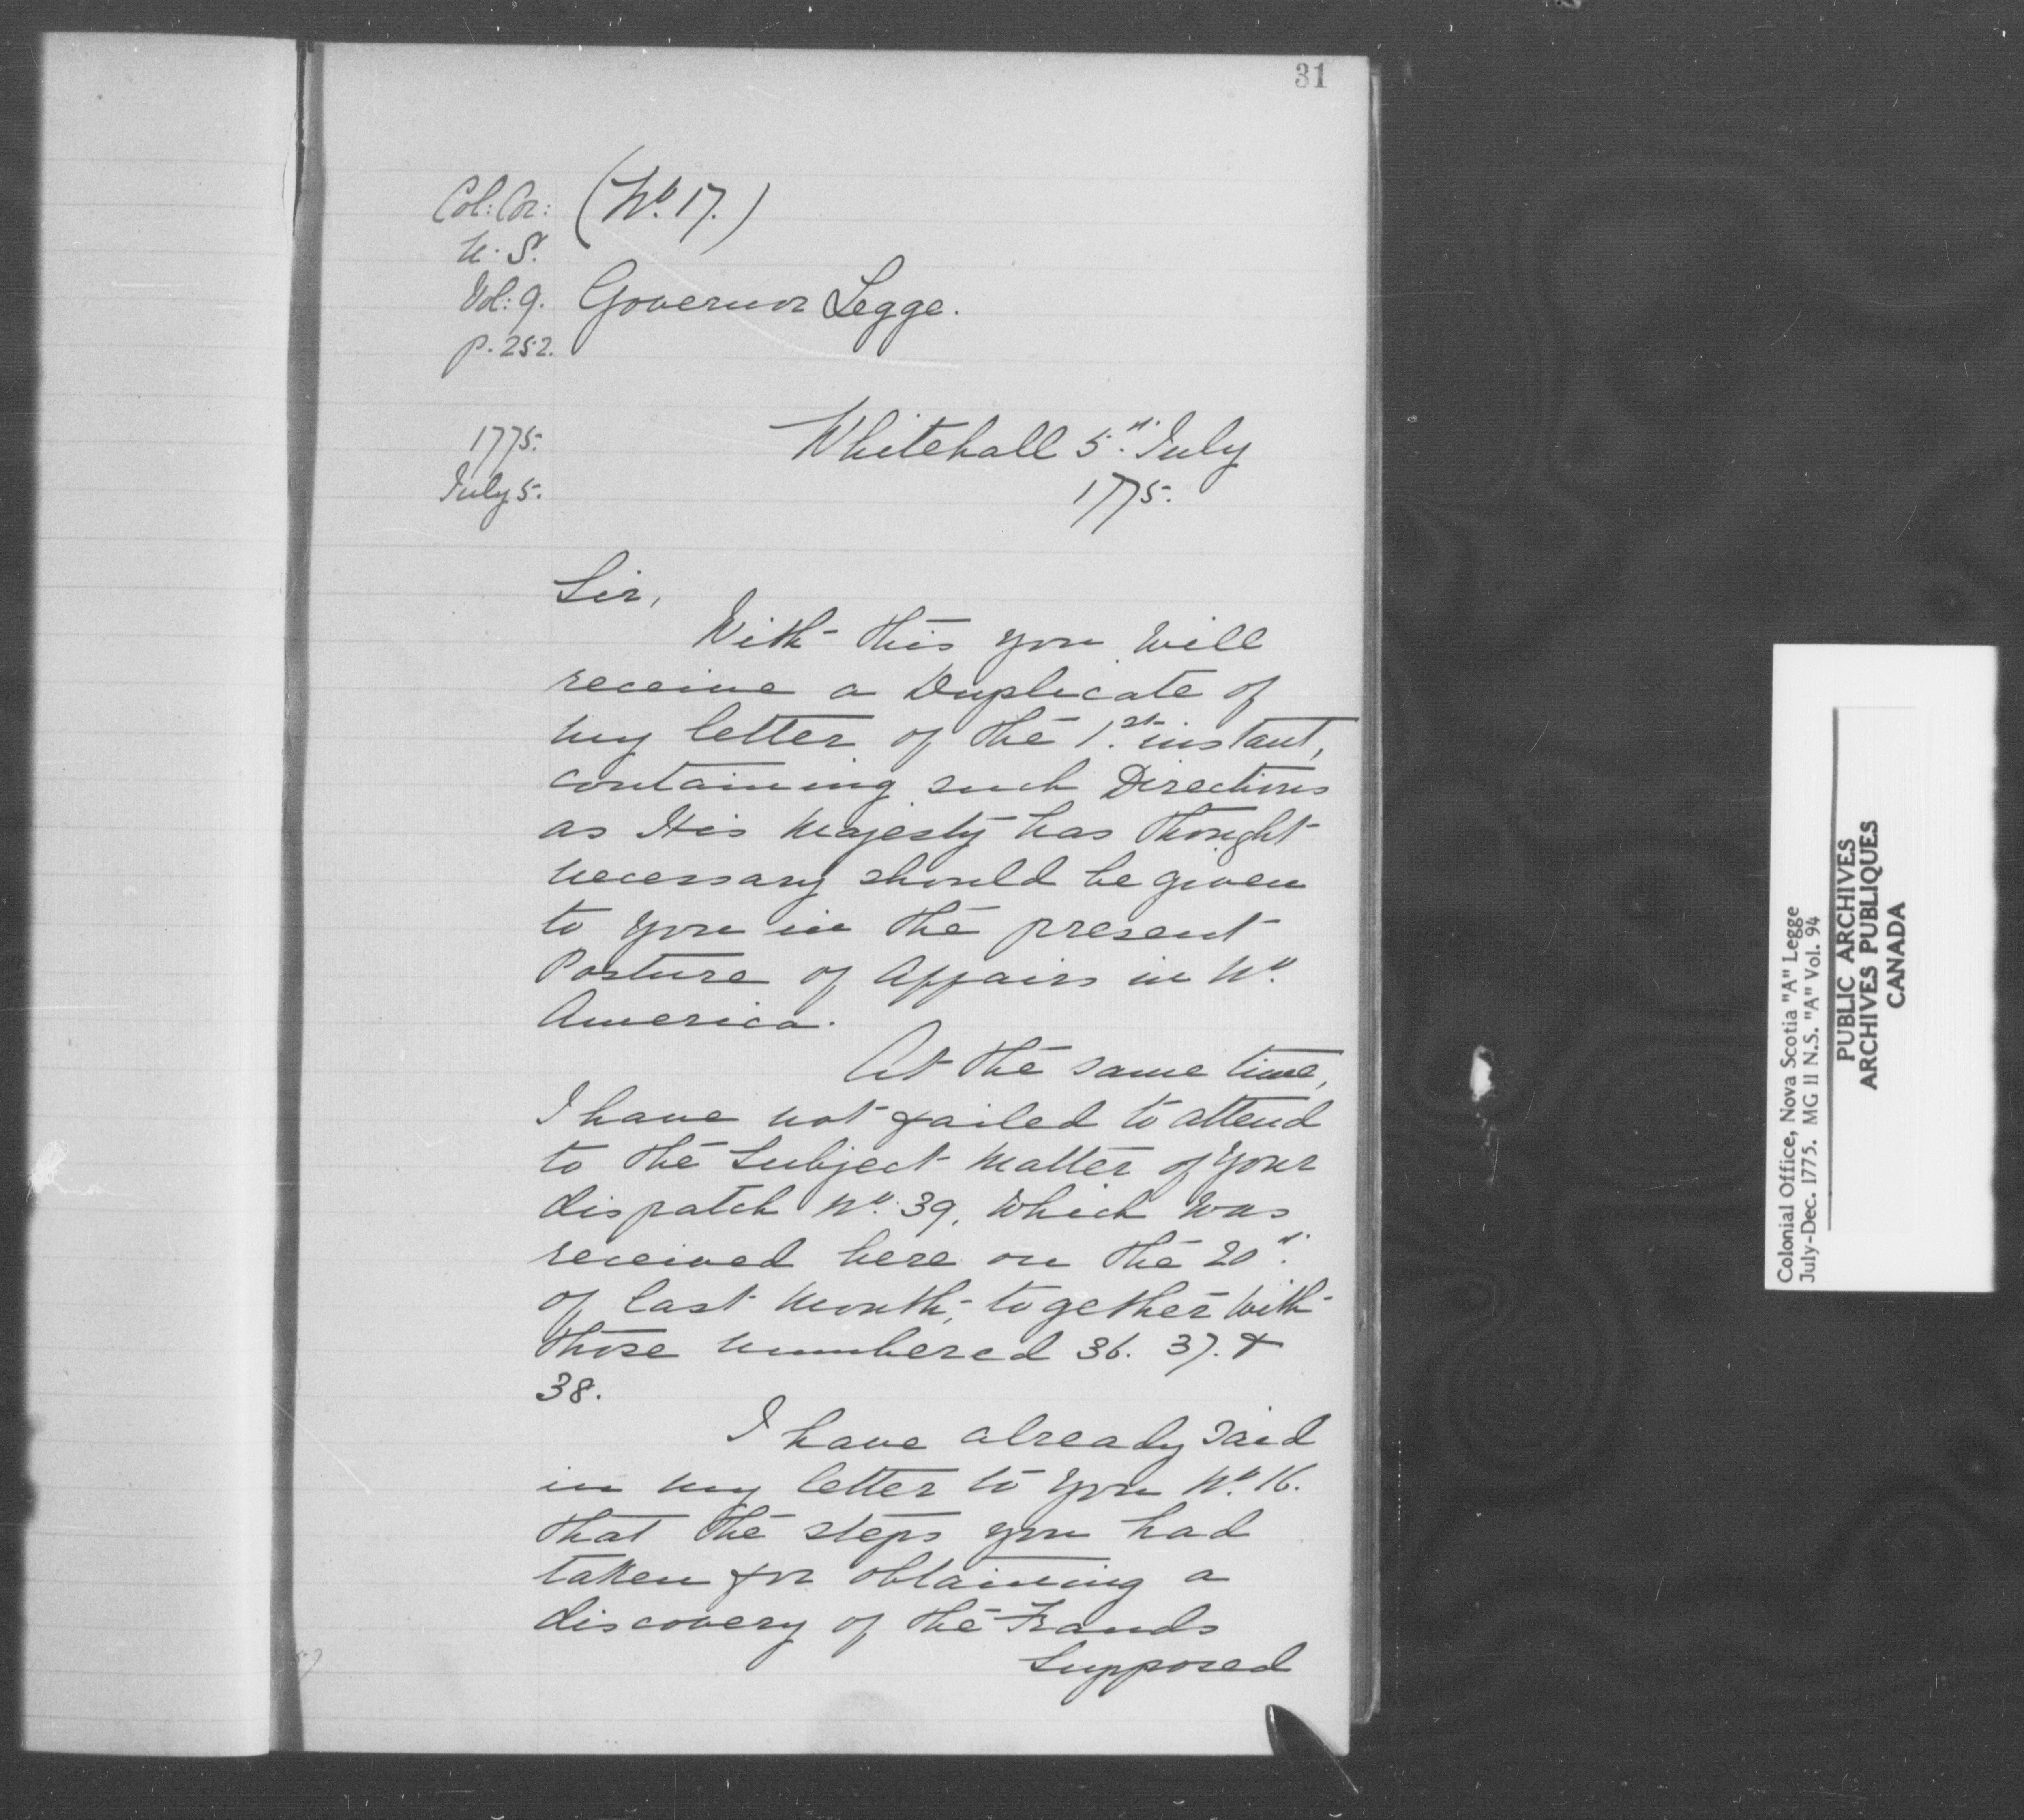 31
Col: Cor: (No. 17.)
N. S.
Vol: 9. Governor Legge.
p. 252.
1775. Whitehall 5th. July
July 5. 1775.
Sir,
With this you will
receive a Duplicate of
my letter of the 1st. instant,
containing such Directions
as His Majesty has thought
necessary should be given
to you in the present
Posture of Affairs in No.
America.
At the same time,
I have not failed to attend
to the Subject Matter of your
dispatch No. 39, which was
received here on the 20th.
of last Month, together with
those numbered 36. 37. &
38.
I have already said
in my letter to you No. 16.
that the steps you had
taken for obtaining a
discovery of the Frauds
Supposed
Colonial Office, Nova Scotia "A" Legge
July-Dec. 1775. MG 11 N.S. "A" Vol. 94
PUBLIC ARCHIVES
ARCHIVES PUBLIQUES
CANADA